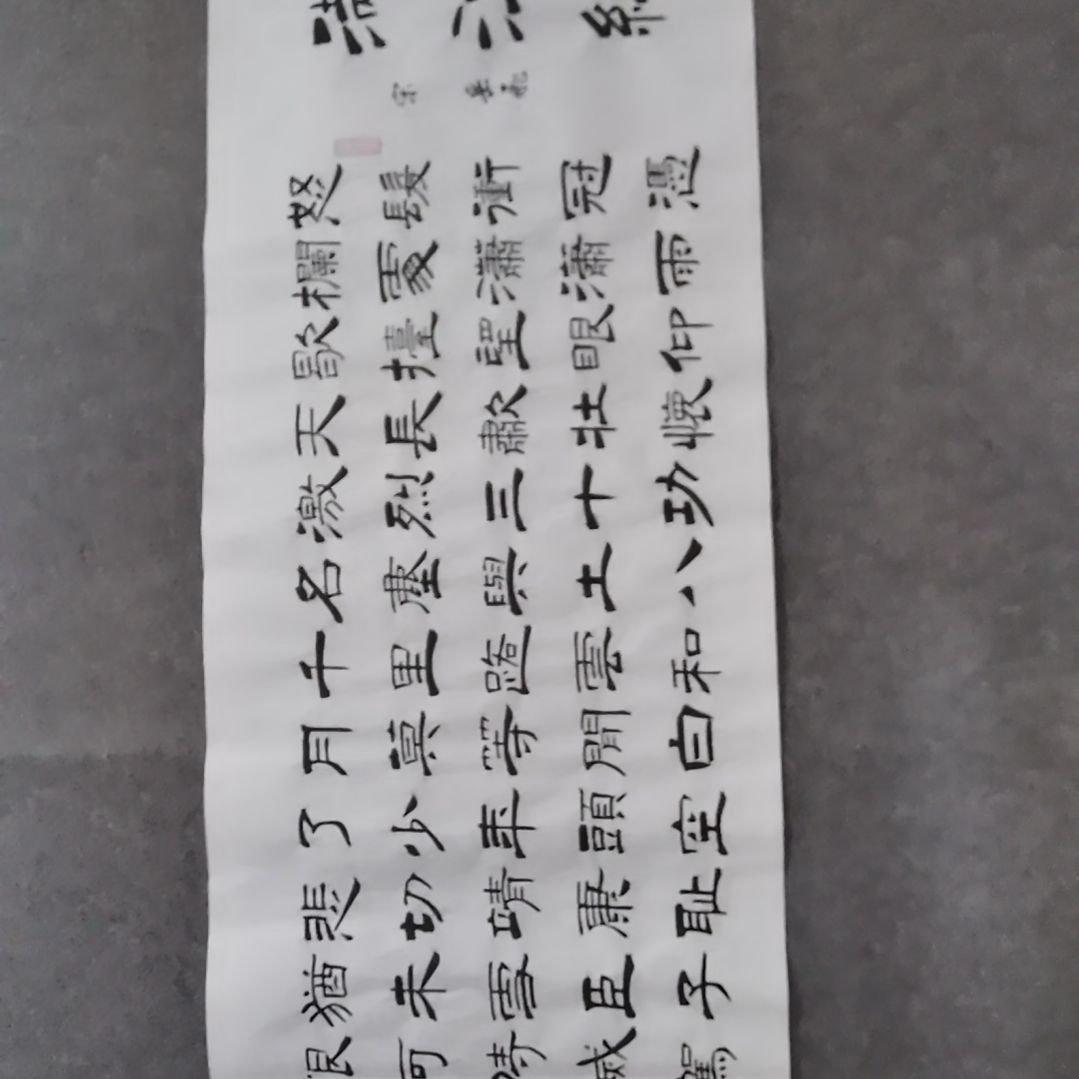 滿江紅
宋 岳飛
怒髮衝冠憑
欄處瀟瀟雨
歇擡望眼仰
天長嘯壯懷
激烈三十功
名塵與土八
千里路雲和
月莫等閒白
了少年頭空
悲切靖康恥
猶未雪臣子
恨何時滅駕